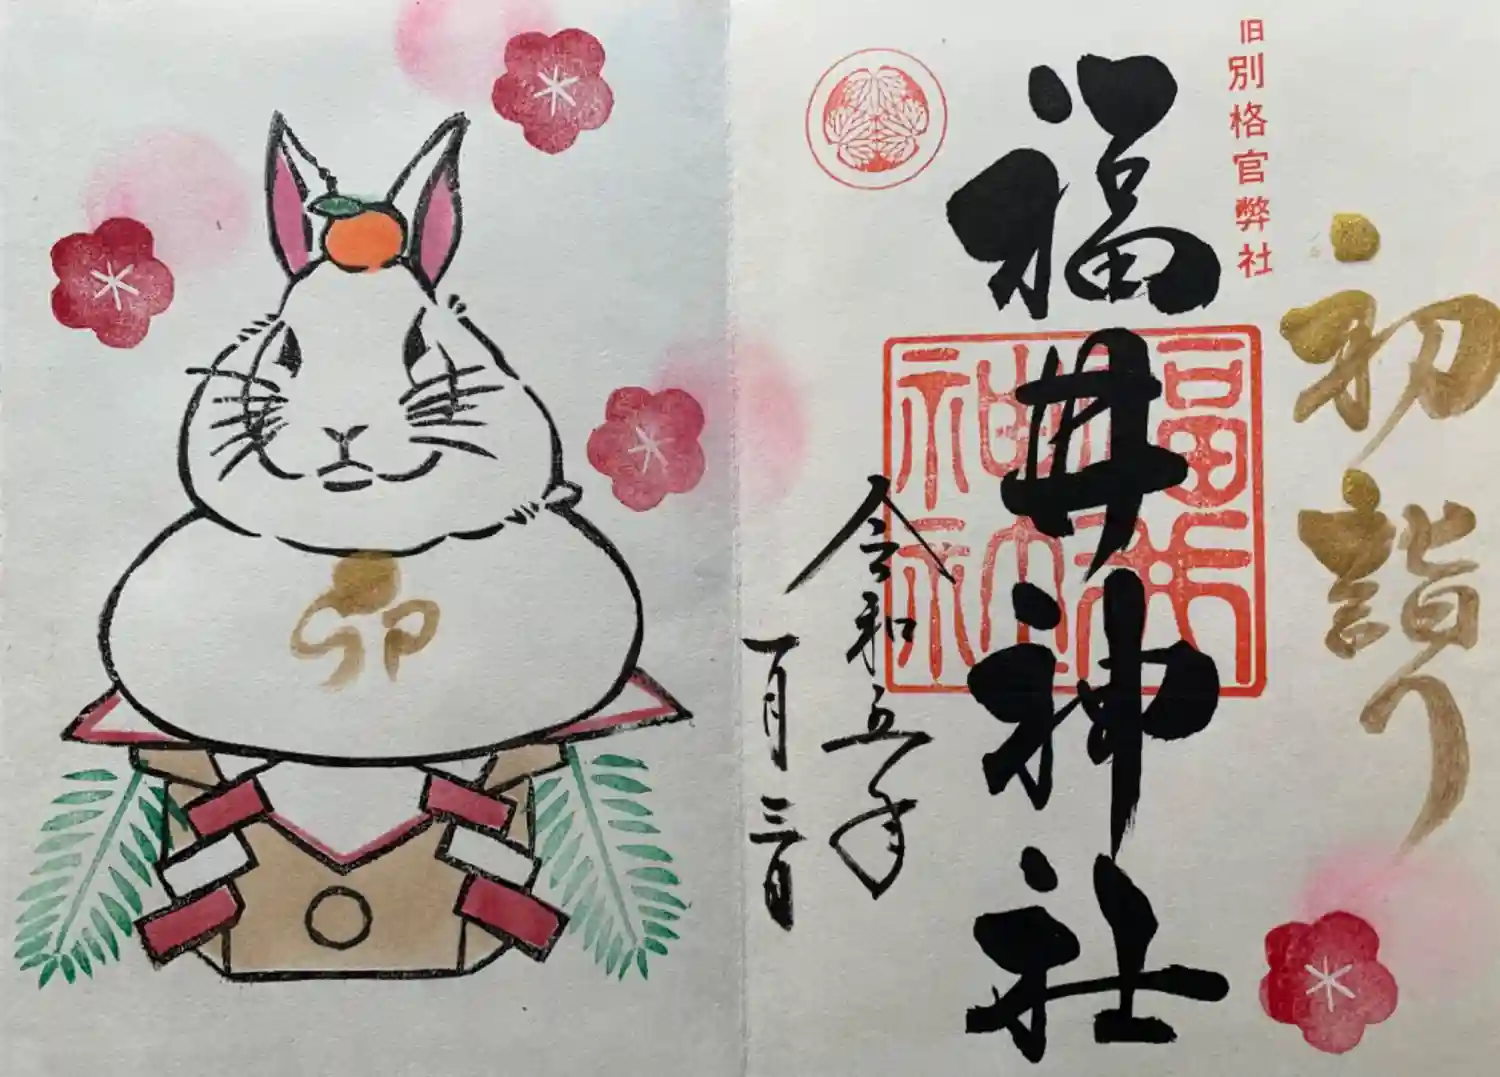 初詣り
旧別格官弊社
福井神社
福井神社神社
令和五年
一月三日
卯